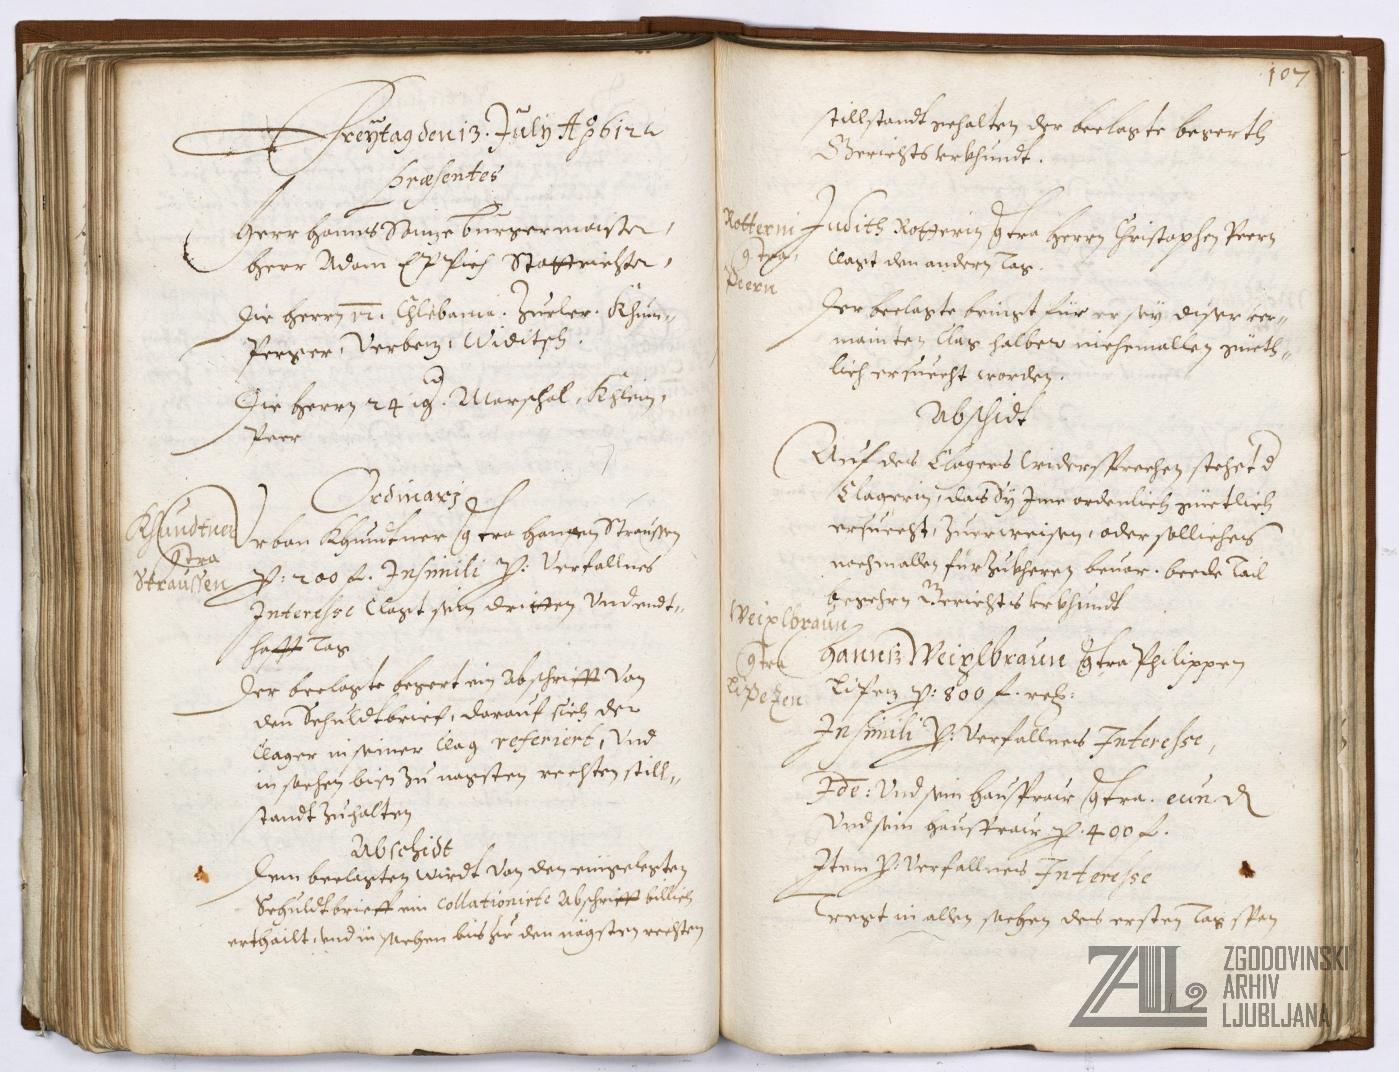 Freÿtag den 13. July Aō 612
Præsentes
Herr Hanns Sonze Burgermaister,
Herr Adam Eppich Stattrichter,
Die Herrn 12. Chlebaina. Zurler. Khum-
perger, Verbez, Widitsch.
Die Herrn 24 ig. Marschal, Khlein,
Peer
Ordinarj
Khundtner
ctra
Straussen
Urban Khundtner ctra Hansen Straussen
P: 200 f. Insimili P: Verfallnes
Interesse Clagt sein dritten Und endt-
hafft Tag
Der beclagte begert ein Abschrifft Von
den Schuldtbrief, darauf sich der
Clager in seiner Clag referiert, Und
in sachen biß zu nagsten rechten still-
standt zuhalten
Abschidt
Dem beclagten wirdt Von den eingelegten
Schuldtbrieff ein collationirte Abschrifft billich
erthailt, und in sachen bis zu den nägsten rechten
107
stillstandt gehalten der beclagte begerth
Gerichts Urkhundt.
Rotterin
ctra
Peern
Judith Rotterin ctra Herrn Christophen Peern
Clagt den andern Tag.
Der beclagte bringt für er seÿ diser ver-
mainten Clag halber niehemallen güeth-
lich ersuecht worden.
Abschidt
Auf des Clagers widersprechen stehet d
Clagerin, das Sÿ Ime ordenlich güetlich
ersuecht, Zuerweisen, oder solliches
nochmallen fürzukheren beuor. beede Tail
begehrn Gerichts Urkhundt
Weixlbraun
ctra
Lipezen
Hannß Weixlbraun ctra Philippen
Lipez P: 800 f. rest:
Insimili P: Verfallnes Interesse,
Ide: Und sein Hausfraw ctra. eund
Und sein Hausfraw P. 400 f.
Item P: Verfallnes Interesse
Tregt in allen sachen des ersten Tag
ZAL
ZGODOVINSKI
ARHIV
LJUBLJANA